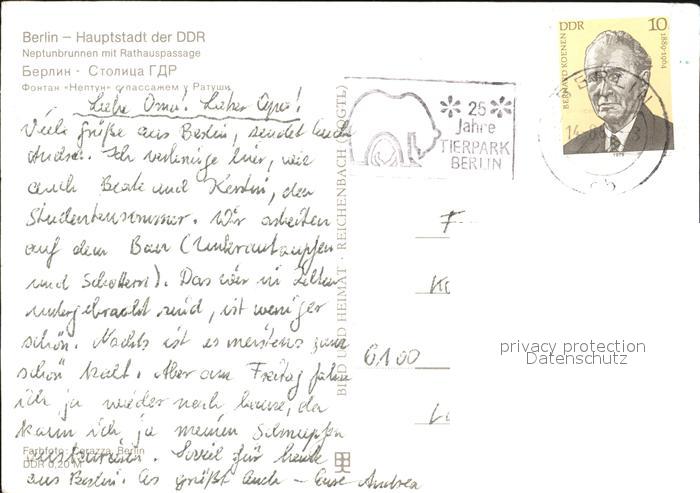 Berlin – Hauptstadt der DDR
Neptunbrunnen mit Rathauspassage
Берлин · Столица ГДР
Фонтан «Нептун» с пассажем у Ратуши
Liebe Oma! Lieber Opa!
Viele Grüße aus Berlin, sendet Euch
Andrea. Ich verbringe hier, wie
auch Beate und Kerstin, den
Studentensommer. Wir arbeiten
auf dem Bau (Unkrautzupfen
und Schottern). Das wir in Zelten
untergebracht sind, ist weniger
schön. Nachts ist es meistens ganz
schön kalt. Aber am Freitag fahre
ich ja wieder nach hause, da
kann ich ja meinen Schnupfen
auskurieren. Soviel für heute
aus Berlin. Es grüßt Euch – Eure Andrea
Farbfoto: Corazza, Berlin
DDR 0,20 M
BILD UND HEIMAT · REICHENBACH (VOGTL)
25
Jahre
TIERPARK
BERLIN
DDR
10
BERNARD KOENEN
1889-1964
6100
privacy protection
Datenschutz